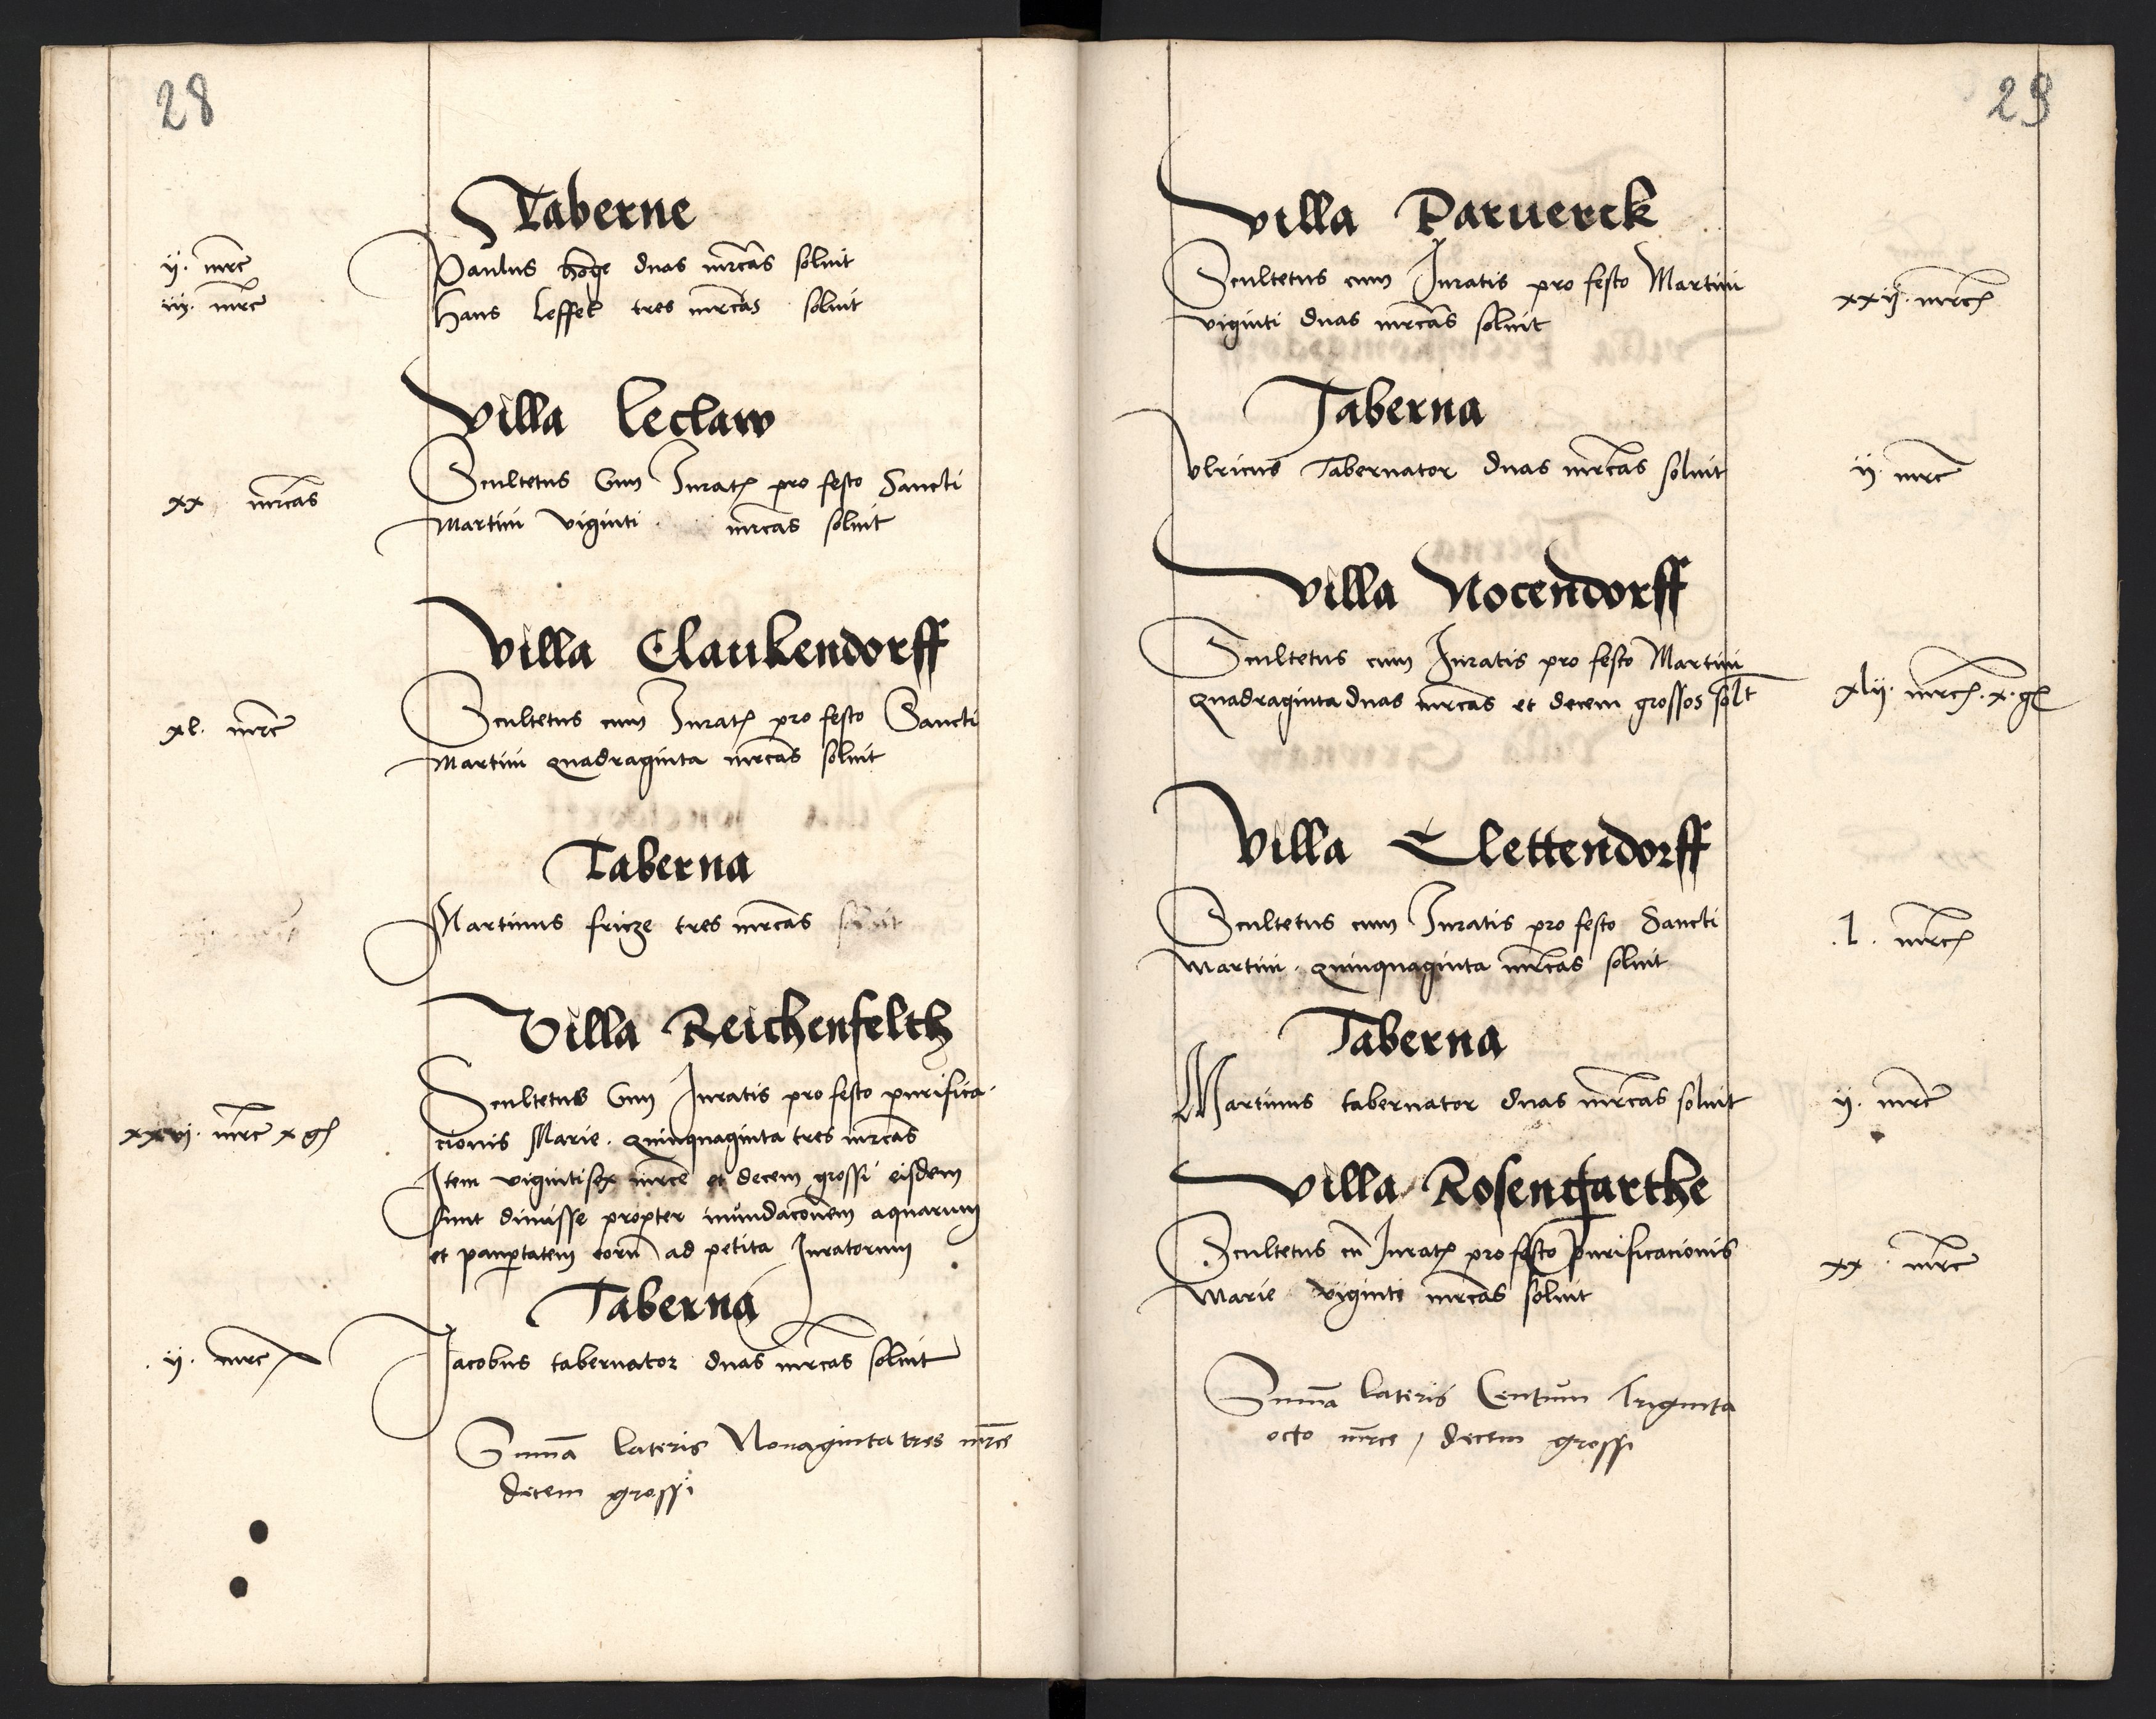 28
Taberne
ij. mrc̄ Paulus hoge duas mrcas soluit
iij. mrc̄ Hans Leffel tres mrcas soluit
Villa Leclaw
Scultetus Cum Iurat pro festo Sancti
xx mrcas Martini viginti mrcas soluit
Villa Claukendorff
Scultetus cum Iurat pro festo Sancti
xl. mrc̄ Martini quadraginta mrcas soluit
Taberna
Martinus fricze tres mrcas
Villa Reichenfelth
Scultetus Cum Iuratis pro festo purifica
xxvj. mrc̄ x g cionis Marie. quinquaginta tres mrcas
Item vigintisex mrce et decem grossi eisdem
sunt dimisse propter inundacōnem aquarum
et paupertatem eorū ad petita Iuratorum
Taberna
.ij. mrc Iacobus tabernator duas mrcas soluit
Sum̄a Lateris Nonaginta tres mrce
decem grossi
29
Villa Paruerck
Scultetus cum Iuratis pro festo Martini
viginti duas mrcas soluit xxij. mrc
Taberna
Vlricus Tabernator duas mrcas soluit ij. mrc̄
Villa Nocendorff
Scultetus cum Iuratis pro festo Martini
quadraginta duas mrcas et decem grossos solt xlij. mrc. x. g
Villa Clettendorff
Scultetus cum Iuratis pro festo Sancti
Martini. quinquaginta mrcas soluit .l. mrc
Taberna
Martinus tabernator duas mrcas soluit ij. mrc̄
Villa Rosengarthe
Scultetus cū Iurat pro festo purificacionis
Marie viginti mrcas soluit xx. mrc̄
Sum̄a Lateris Centum Triginta
octo mrce / decem grossi